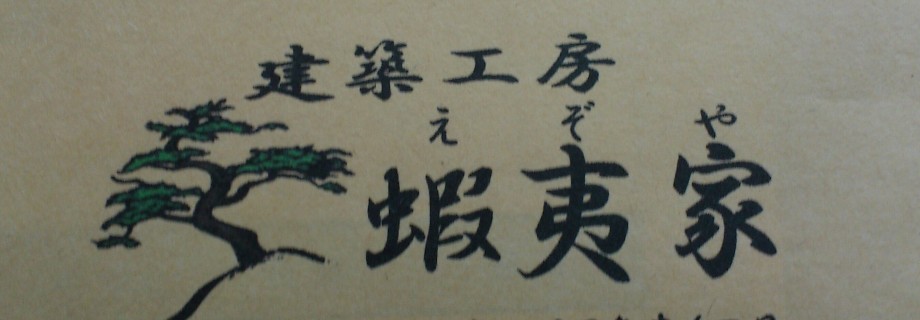 建築工房
えぞや
蝦夷家